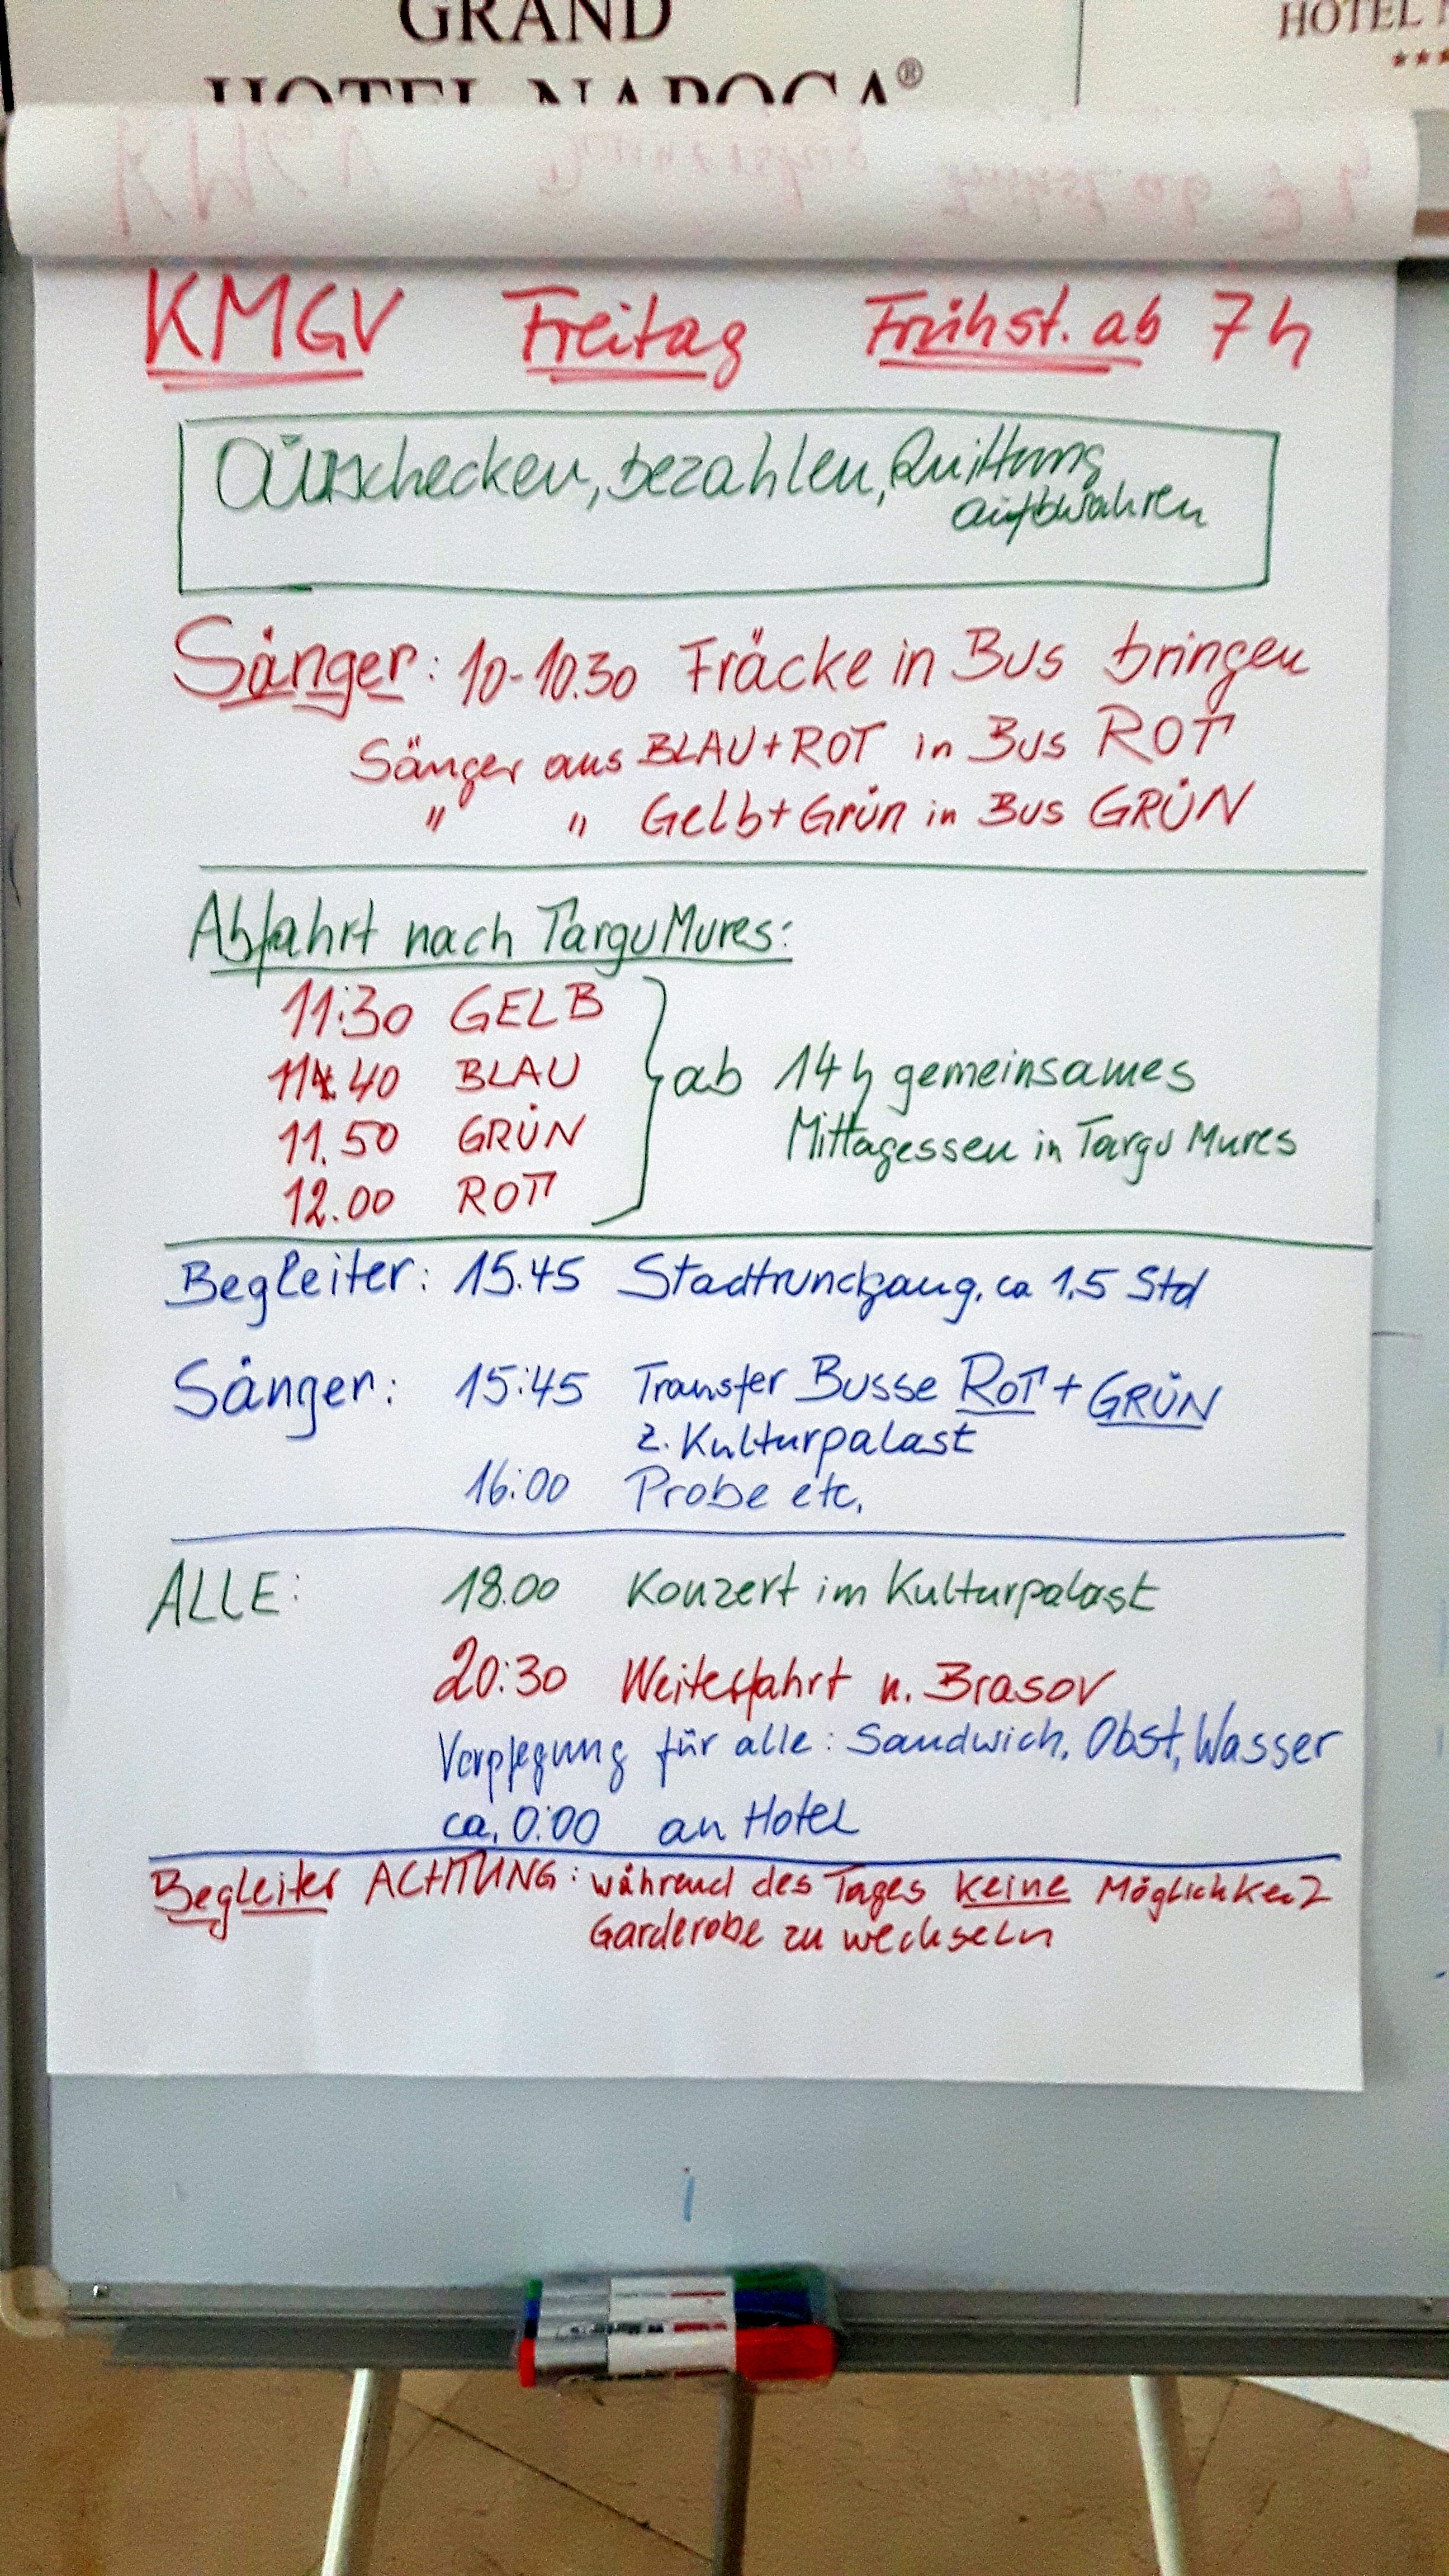 GRAND
HOTEL NAPOCA®
HOTEL
KMGV Freitag Frühst. ab 7 h
Auschecken, bezahlen, Quittung
aufbwahren
Sänger: 10-10.30 Fräcke in Bus bringen
Sänger aus BLAU+ROT in Bus ROT
" " Gelb+Grün in Bus GRÜN
Abfahrt nach Targu Mures:
11:30 GELB
11.40 BLAU
11.50 GRÜN
12.00 ROT
ab 14 h gemeinsames
Mittagessen in Targu Mures
Begleiter: 15.45 Stadtrundgang, ca 1,5 Std
Sänger: 15:45 Transfer Busse ROT + GRÜN
z. Kulturpalast
16:00 Probe etc.
ALLE: 18.00 Konzert im Kulturpalast
20:30 Weiterfahrt n. Brasov
Verpflegung für alle: Sandwich, Obst, Wasser
ca. 0:00 an Hotel
Begleiter ACHTUNG: während des Tages keine Möglichkeit
Garderobe zu wechseln